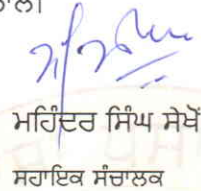 ਮਹਿੰਦਰ ਸਿੰਘ ਸੇਖੋਂ
ਸਹਾਇਕ ਸੰਚਾਲਕ